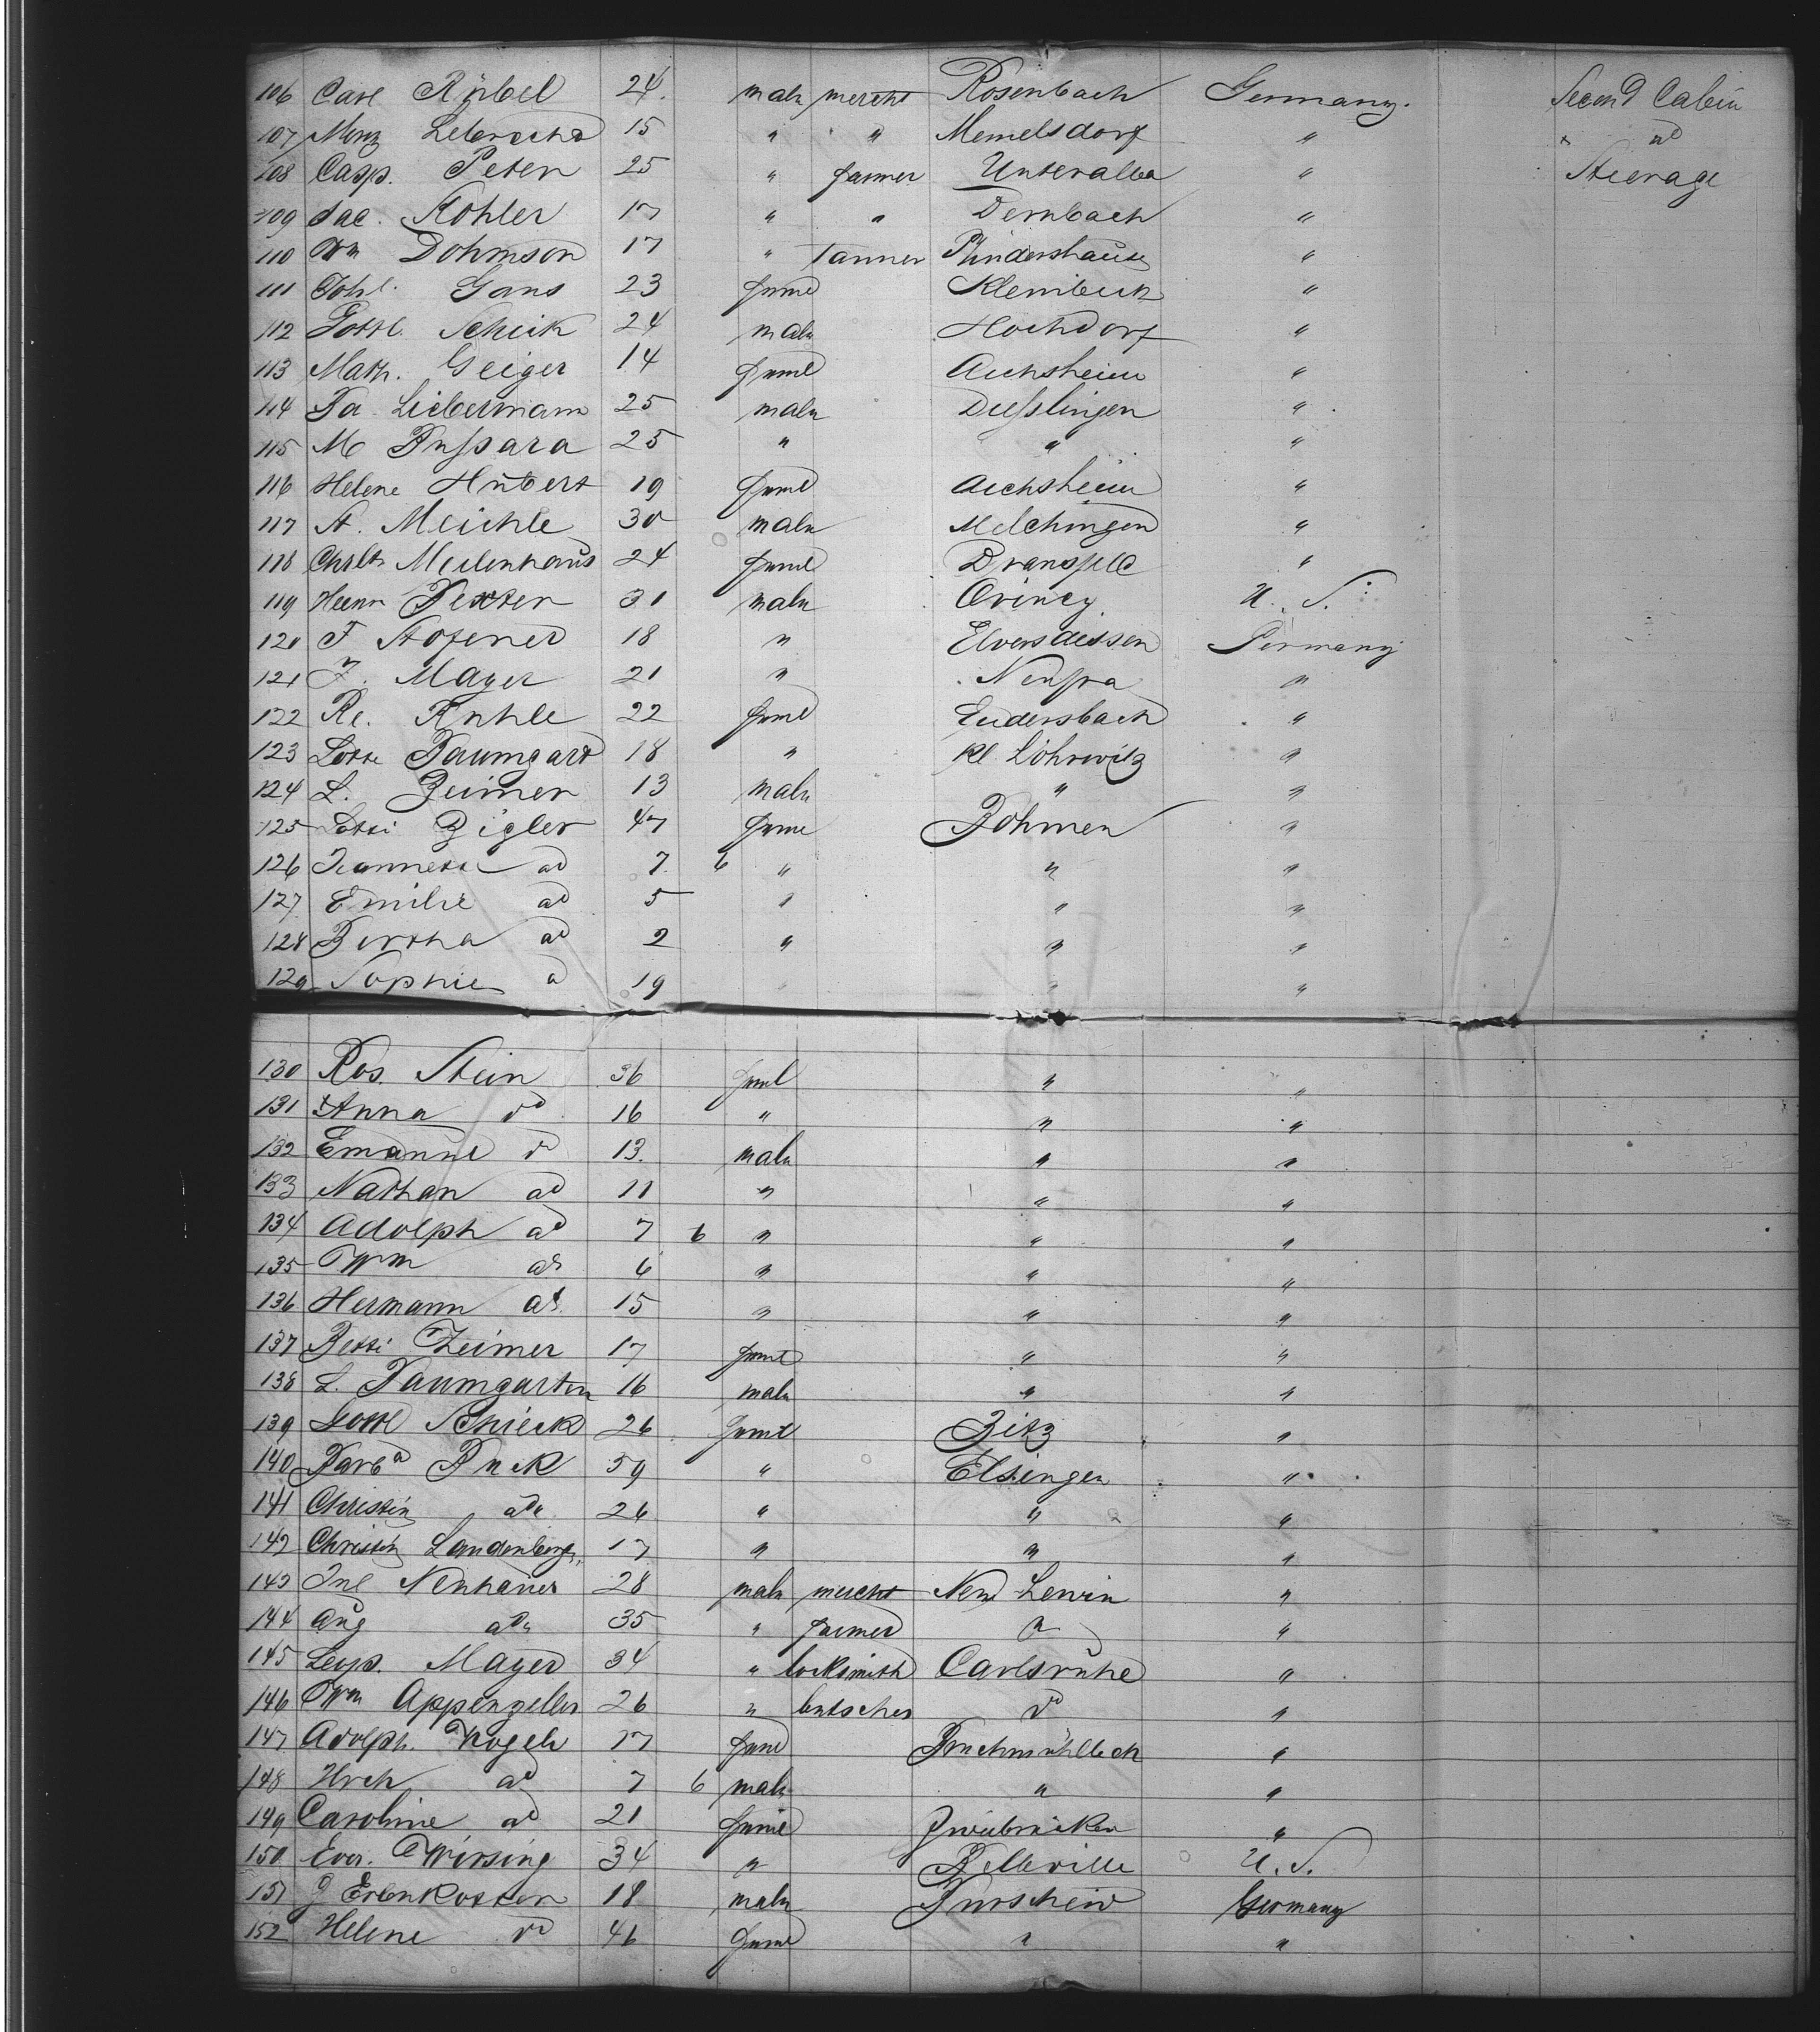 106 Carl Rübel 24. male mercht Rosenbach Germany. Second Cabin
107 Mony Lebrecht 15 " " Memelsdorf " " do
108 Casp. Peter 25 " farmer Unteralba " Steerage
109 Jac. Kohler 17 " " Dernbach "
110 Wm Dohmson 17 " Tanner "
111 Joh. Gans 23 feml "
112 Gottl. Schick 24 male Hochdorf "
113 Math. Geiger 14 feml Aichsheim "
114 Ba. Liebermann 25 male Dusslingen "
115 M 25 " " "
116 Helene Hübert 19 feml Aichsheim "
117 A. Meichle 30 male Melchingen "
118 Chrltt Meilenhaus 24 feml Dransfeld "
119 Herm Bexter 31 male Quincy U. S.
120 F 18 " Germany
121 F. Mayer 21 " "
122 Re. 22 feml Endersbach "
123 Lotte Baumgart 18 " Kl. Lohrwitz "
124 L. Zeimer 13 male " "
125 Zigler 47 feml Böhmen "
126 Jeannette do 7 6 " " "
127 Emilie do 5 " " "
128 Bertha do 2 " " "
129 Sophie do 19 " "
130 Ros. Stein 36 feml " "
131 Anna do 16 " " "
132 Emanuel do 13. male " "
133 Nathan do 11 " " "
134 Adolph do 7 6 " " "
135 Wm do 6 " " "
136 Hermann do 15 " " "
137 Betti Zeimer 17 feml " "
138 L. Baumgarten 16 male " "
139 Gottl Schieck 26 feml Zitz "
140 Barba Buck 59 " Elsingen "
141 Christin do 26 " " "
142 Christin Landenberger 17 " " "
143 Jul Neuhaus 28 male mercht Neu Lewin "
144 Aug do 35 " farmer " "
145 Leop. Mayer 34 " locksmith Carlsruhe "
146 Wm Appenzeller 26 " butscher do "
147 Adolph. Vogel 17 feml Bruchmühlbach "
148 Hrch do 7 6 male " "
149 Caroline do 21 feml Zweibrücken "
150 Eva. Wirsing 34 " Belleville U. S.
151 G Erbenkosten 18 male Burscheid Germany
152 Helene do 46 feml " "